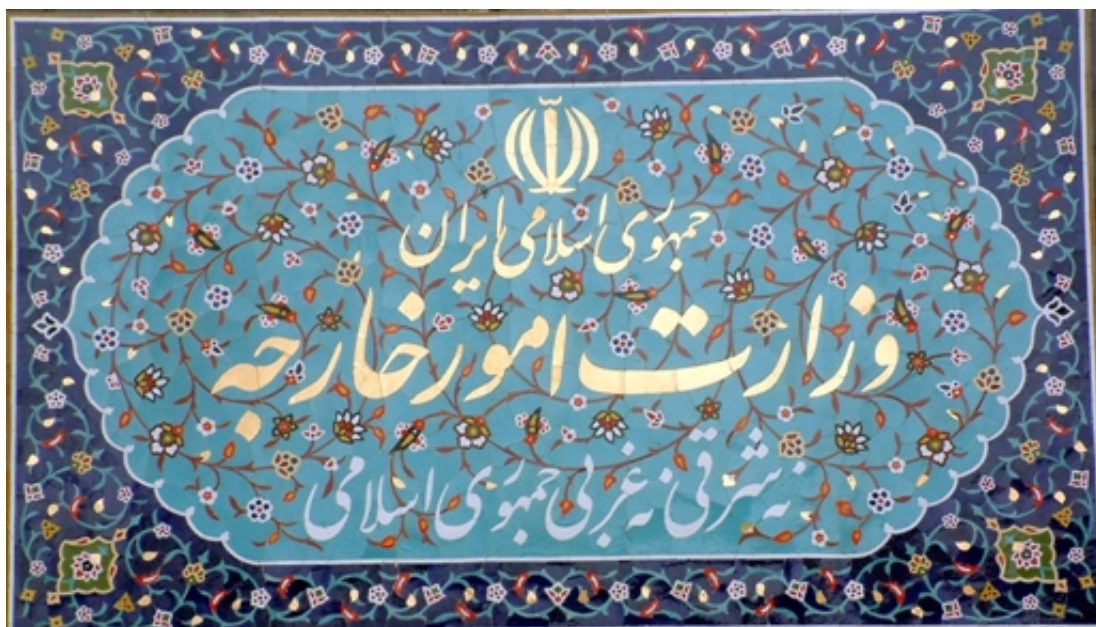 جمهوری اسلامی ایران
وزارت امور خارجه
نه شرقی نه غربی جمهوری اسلامی